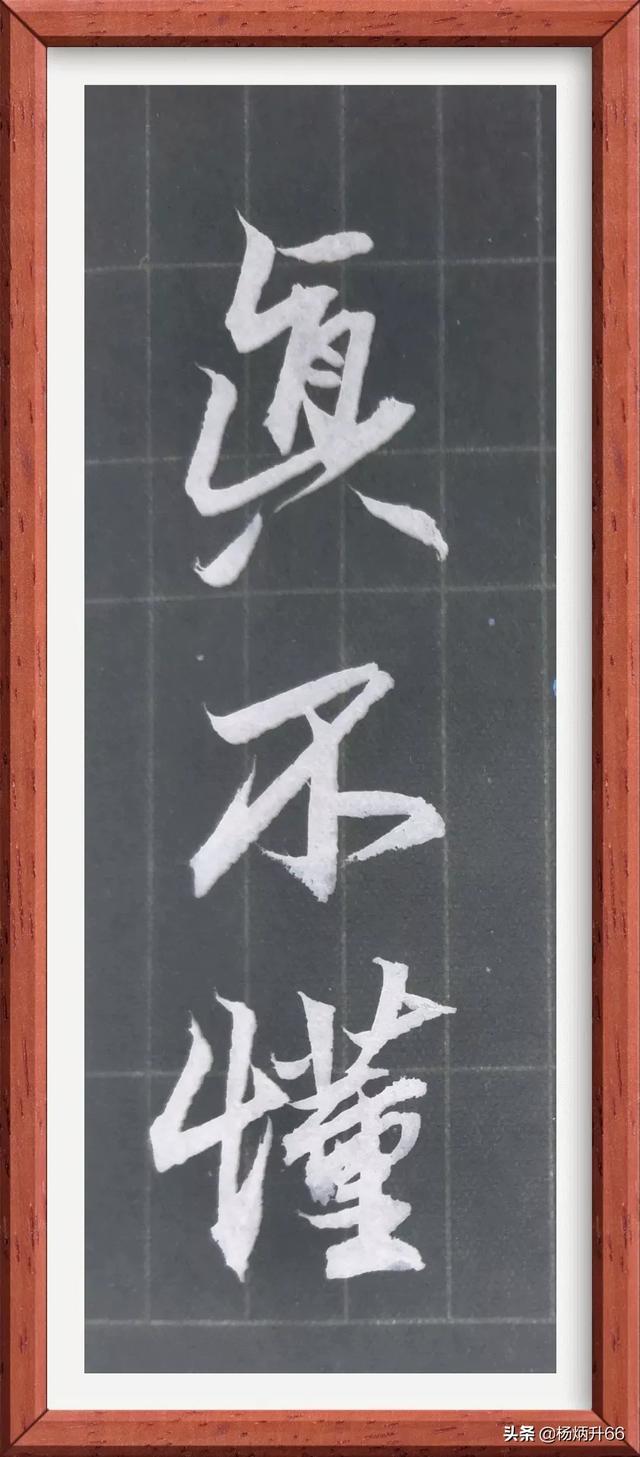 真不懂
头条 @杨炳升66